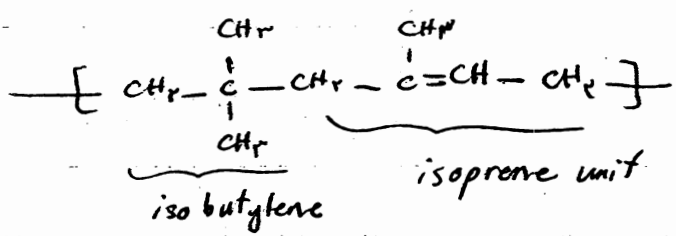 CH۳ CH۳
[ CH۲ — C — CH۲ — C = CH — CH۲ ]
CH۳
isobutylene isoprene unit